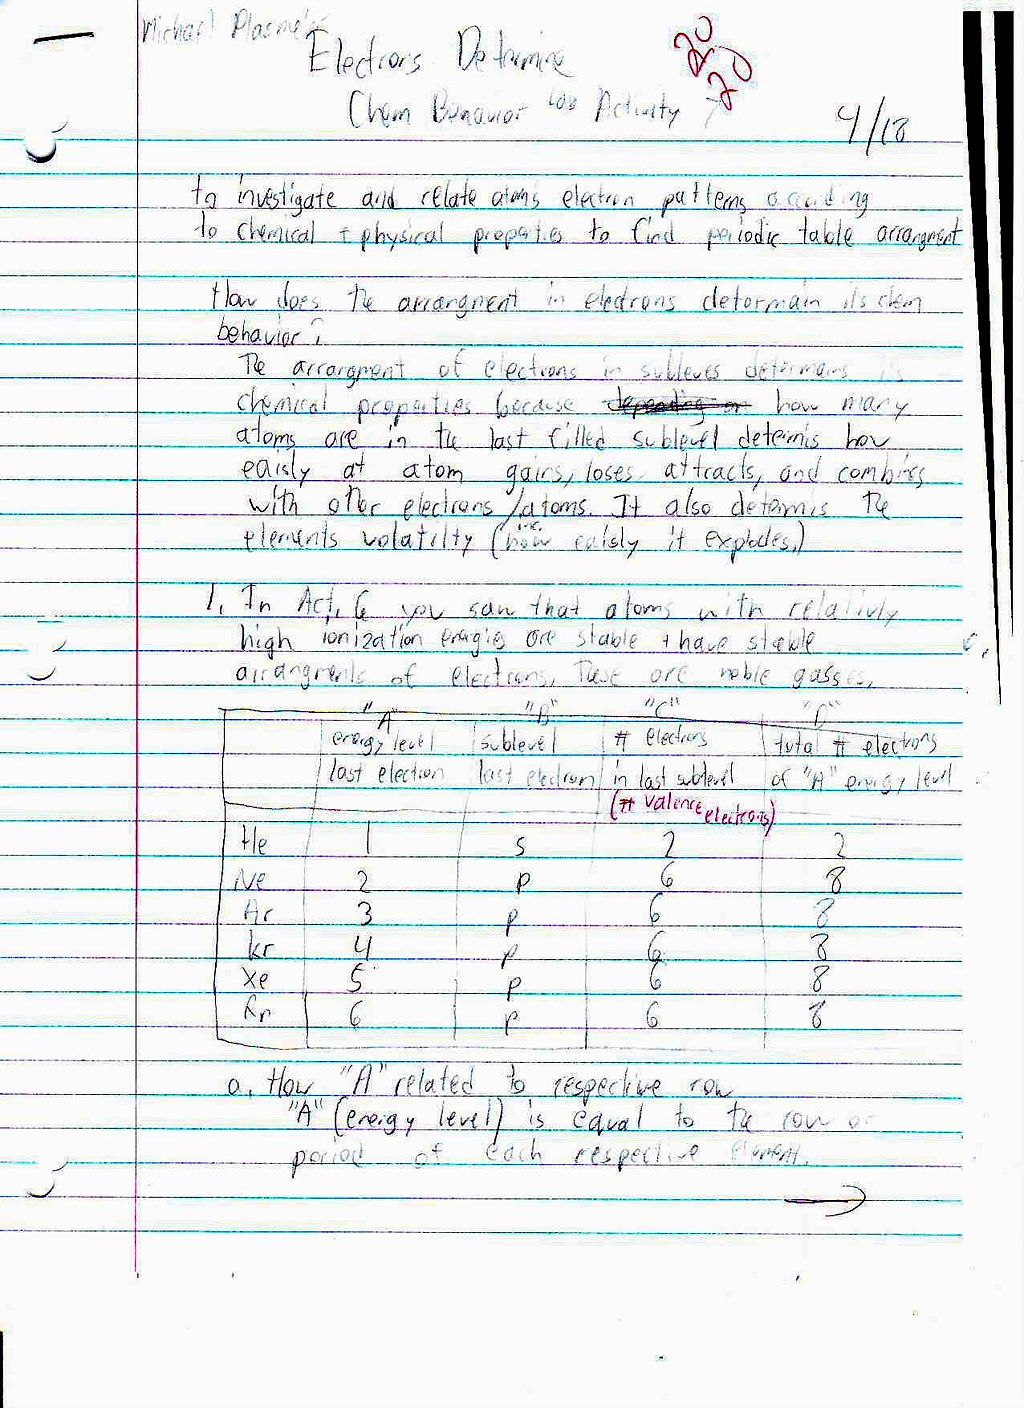 Michael Plasmeier
Electrons Determine
Chem Behavior Lab Activity 7
20
20
4/18
to investigate and relate atoms electron patterns according
to chemical + physical properties to find periodic table arrangment
How does the arrangment in electrons determain its chem
behavior?
The arrangment of electrons in subleves determains its
chemical properties because depending on how many
atoms are in the last filled sublevel determis how
eaisly at atom gains, loses, attracts, and combines
with other electrons/atoms. It also determis the
elements volatilty (how eaisly it explodes.)
1. In Act. 6 you saw that atoms with relativly
high ionization energies are stable + have stable
arrangments of electrons, These are noble gasses.
"A" "B" "C" "D"
energy level sublevel # electrons total # electrons
last electron last electron in last sublevel of "A" energy level
(# valence electrons)
He 1 s 2 2
Ne 2 p 6 8
Ar 3 p 6 8
Kr 4 p 6 8
Xe 5 p 6 8
Rn 6 p 6 8
a. How "A" related to respective row
"A" (energy level) is equal to the row or
period of each respective element.